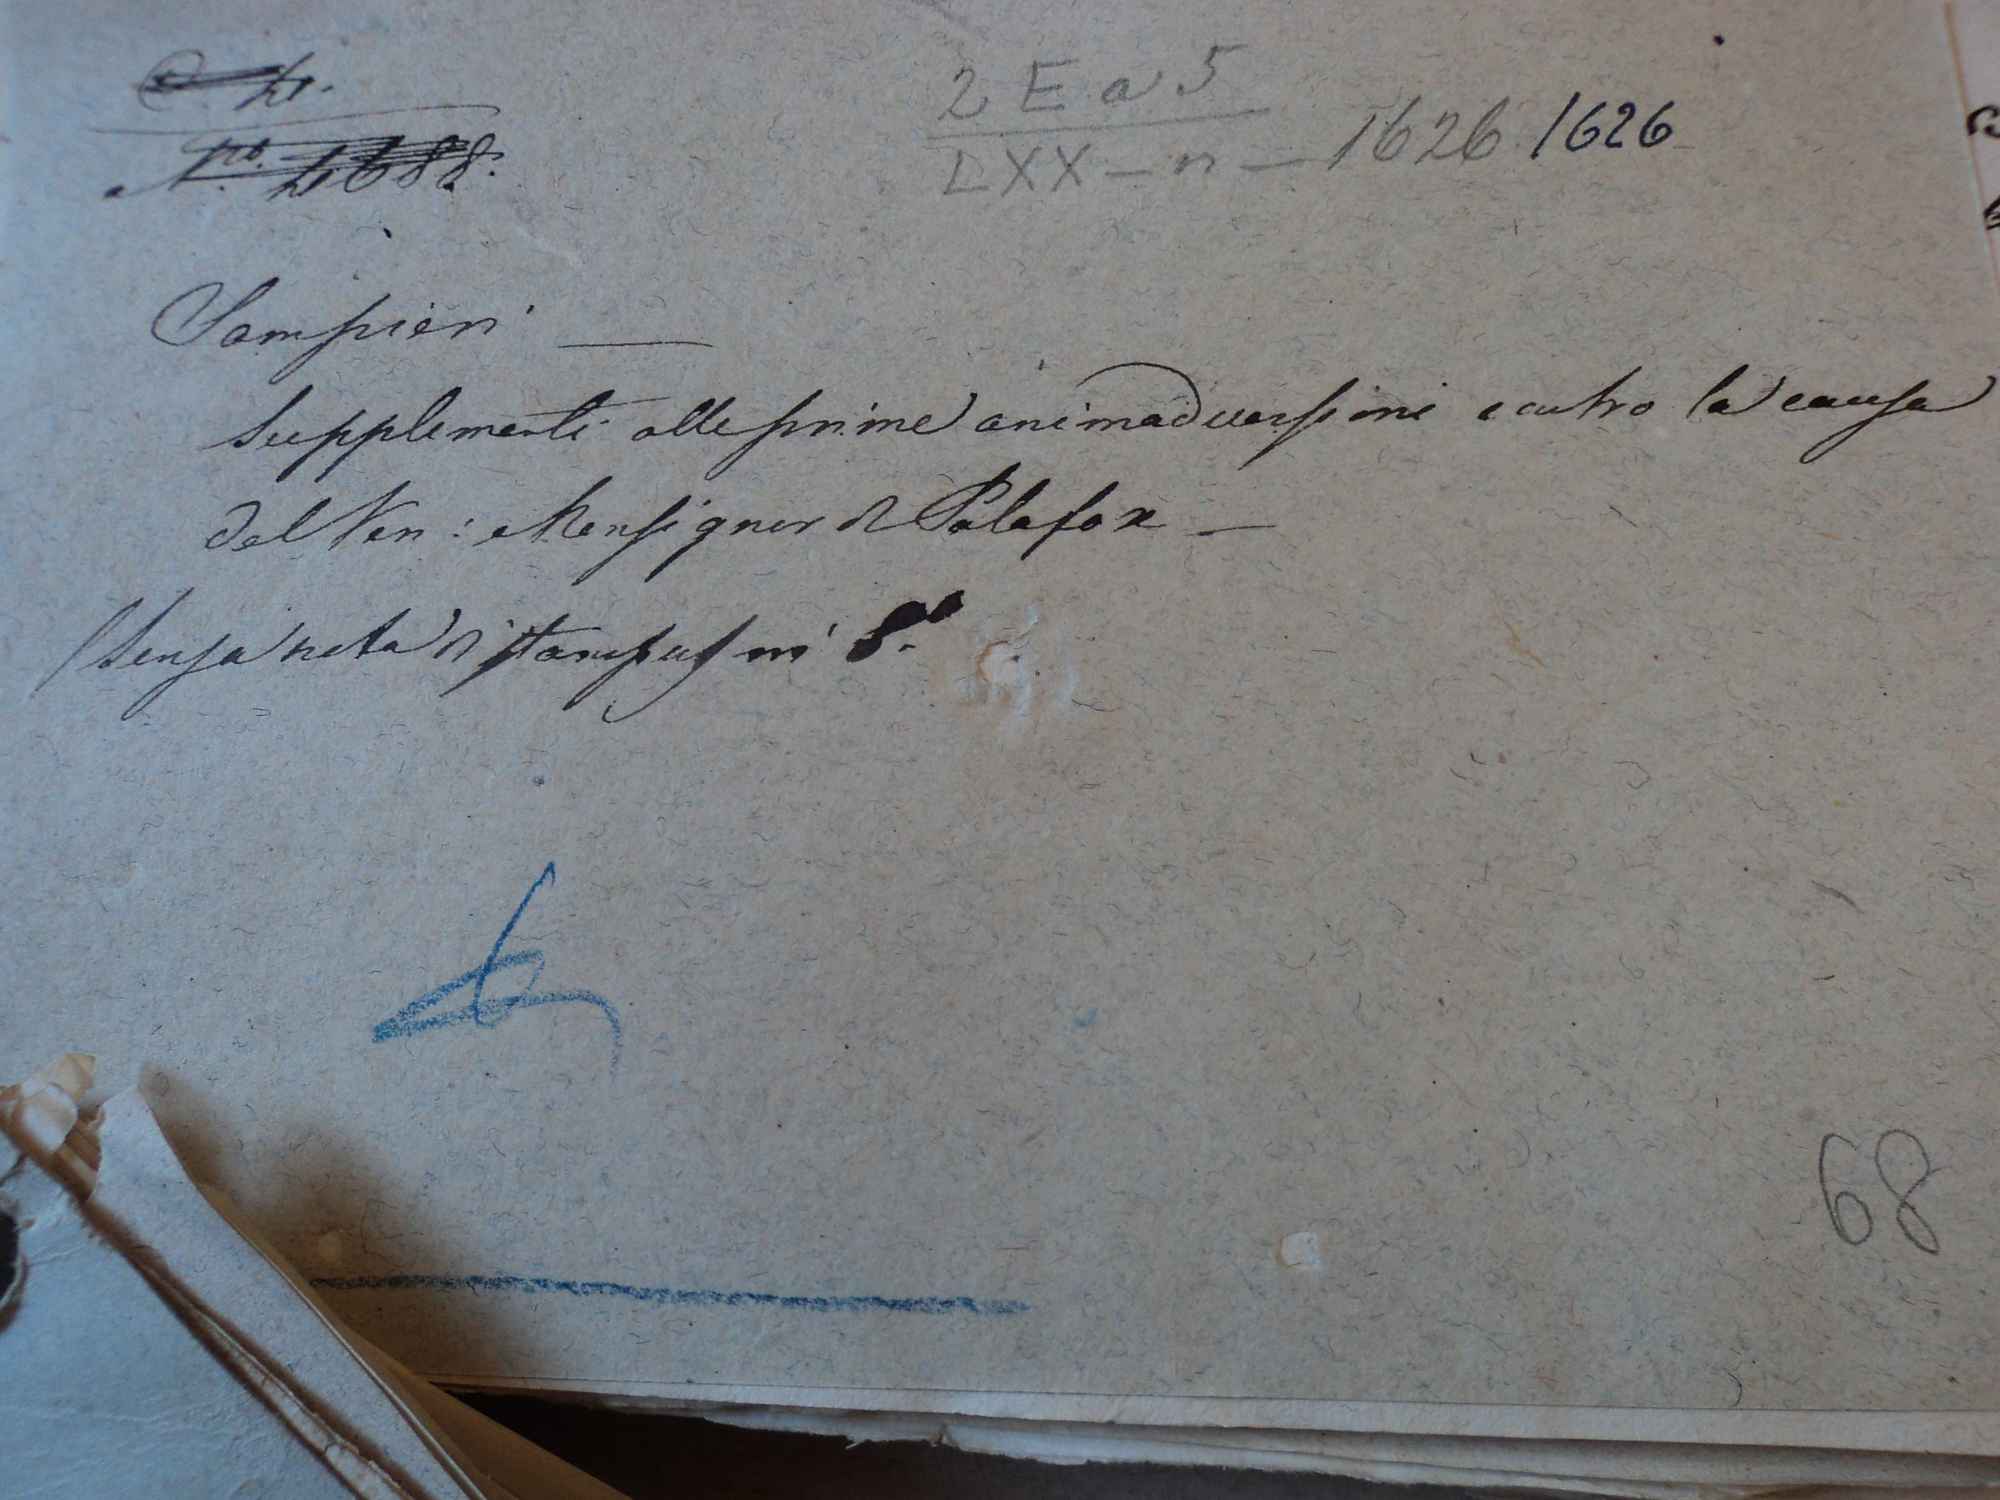 2 E a 5
N.ro 4688.
LXX - n - 1626 1626
Sampieri
Supplementi alle prime animadversioni contro la causa
del Ven: Monsignor di Palafox
(Senza nota di stampa) in 8.o
68